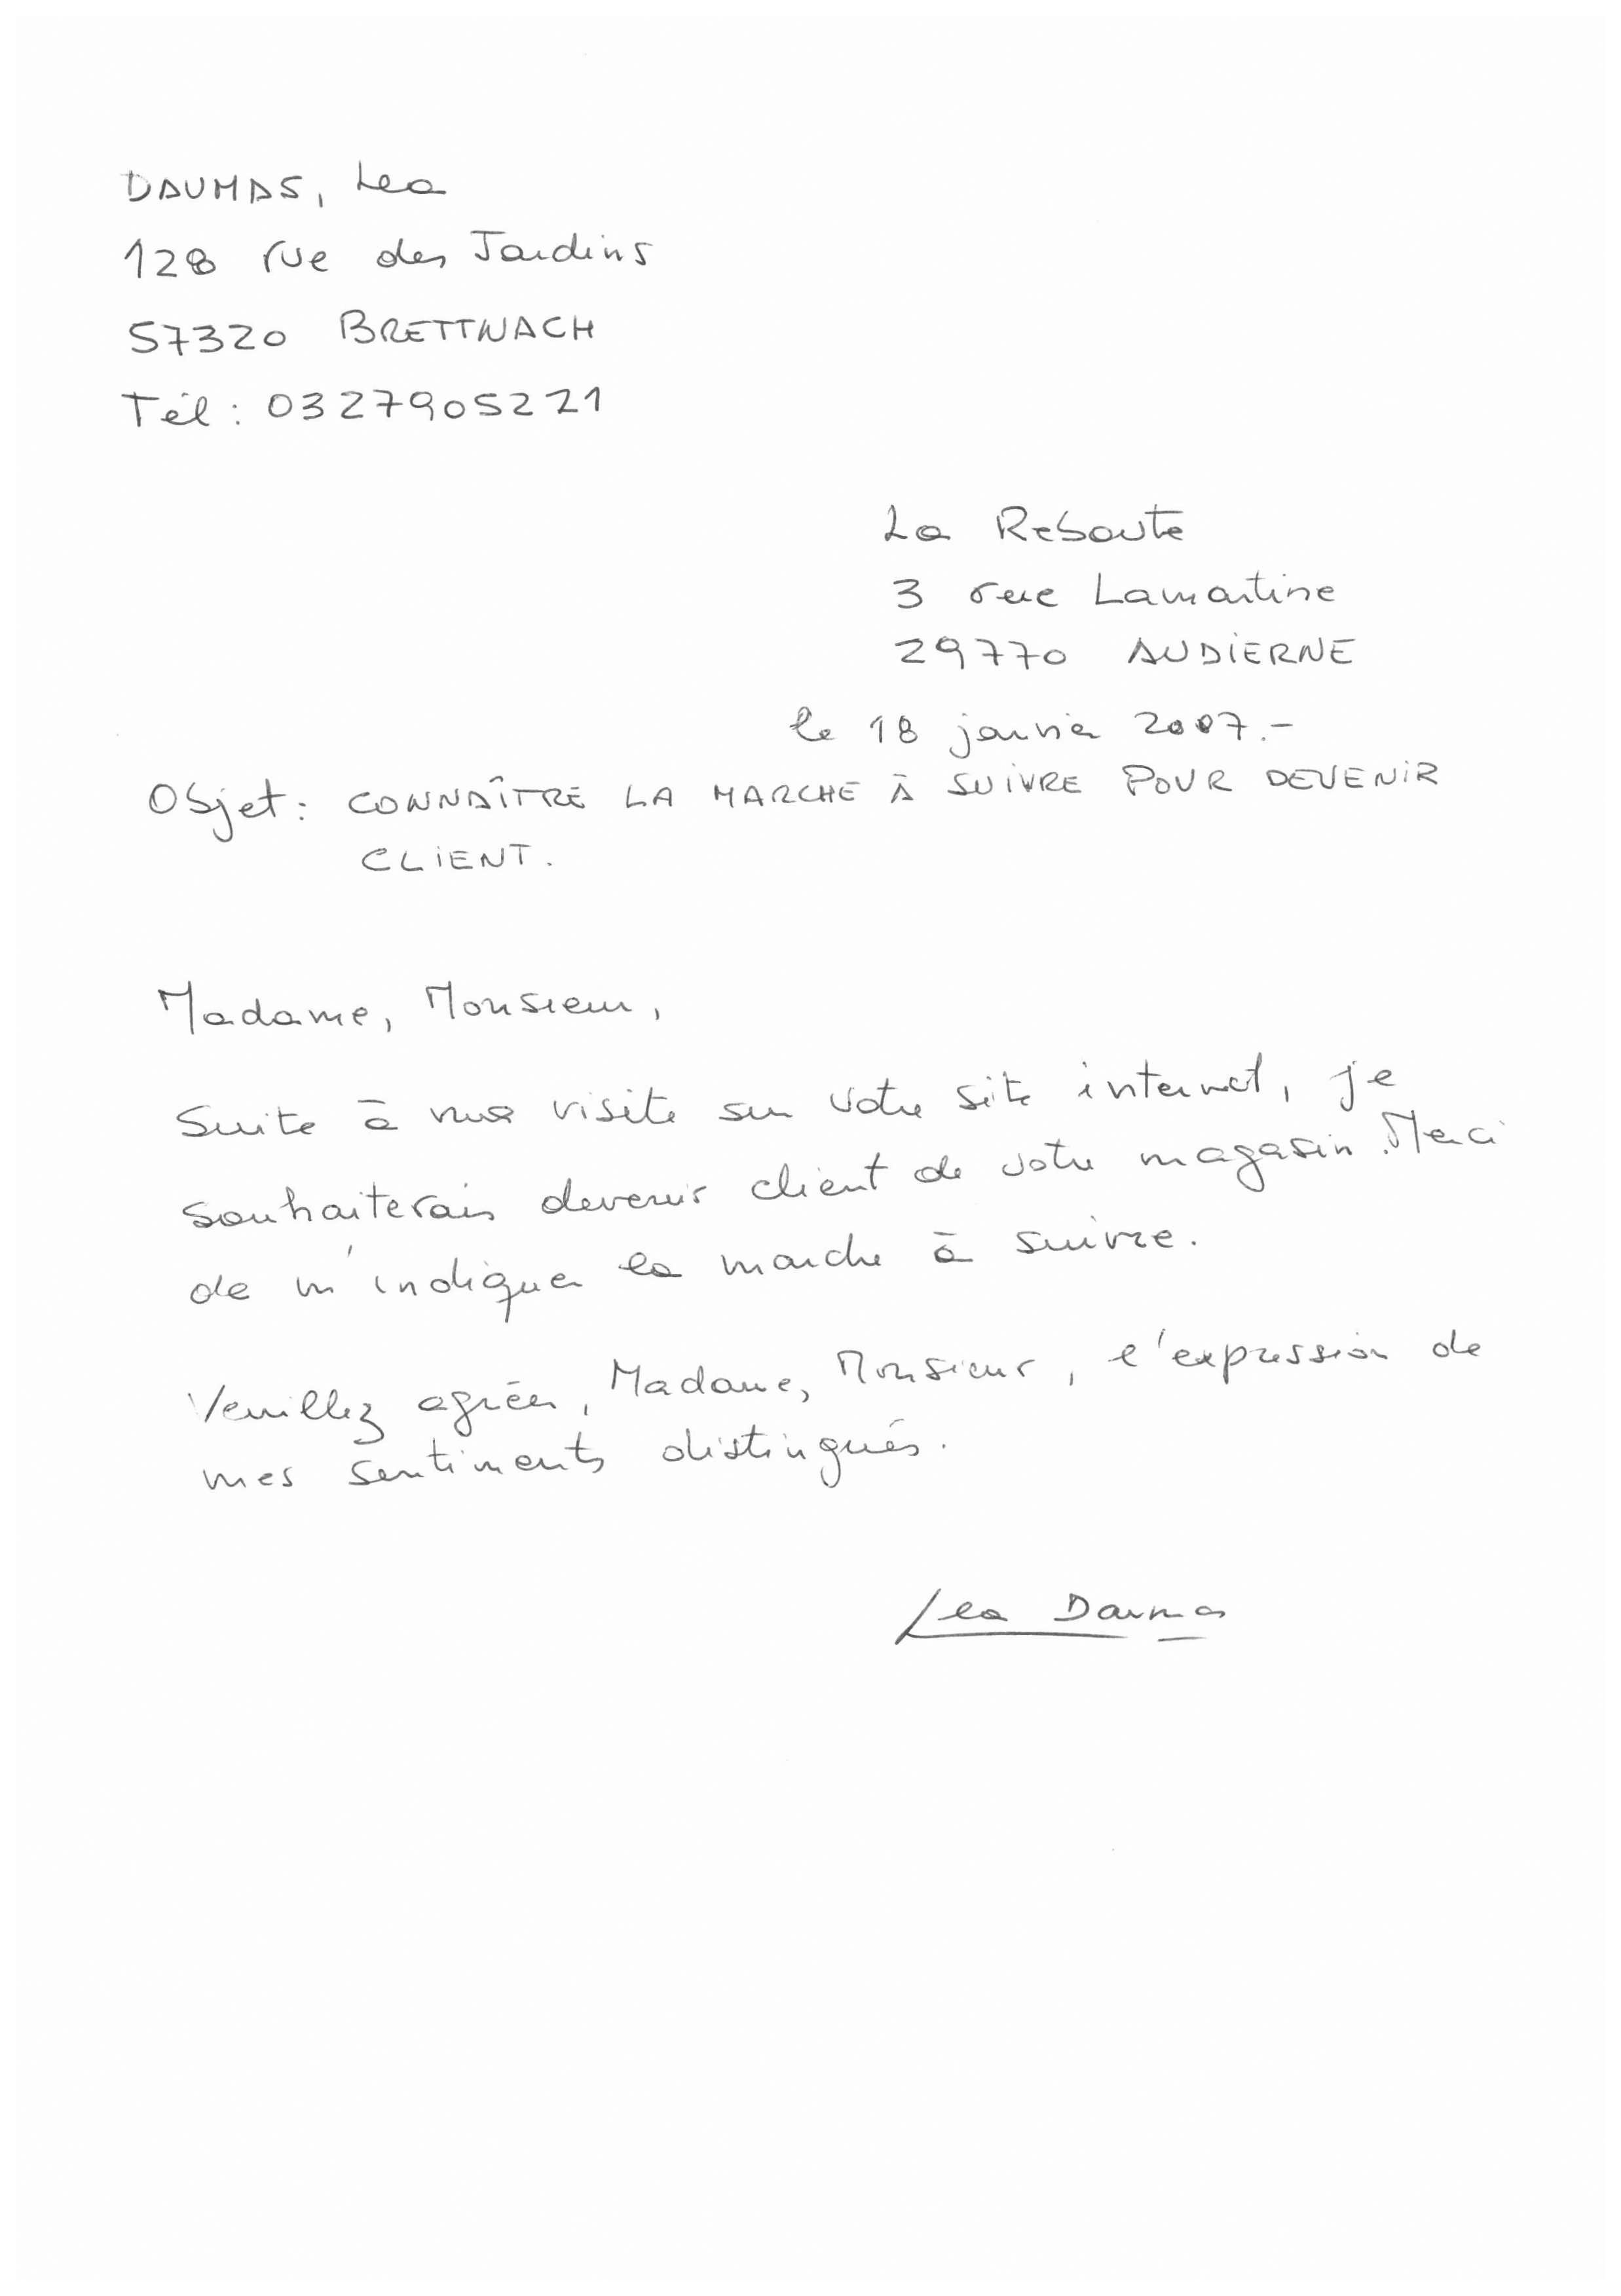 DAUMAS, Lea
128 rue des Jardins
57320 BRETTNACH
Tél : 0327905221
La Reboute
3 rue Lamartine
29770 AUDIERNE
le 18 janvier 2007.-
Objet : CONNAÎTRE LA MARCHE À SUIVRE POUR DEVENIR
CLIENT.
Madame, Monsieur,
Suite à ma visite sur votre site internet, je
souhaiterais devenir client de votre magasin. Merci
de m'indiquer la marche à suivre.
Veuillez agréer, Madame, Monsieur, l'expression de
mes sentiments distingués.
Lea Daumas